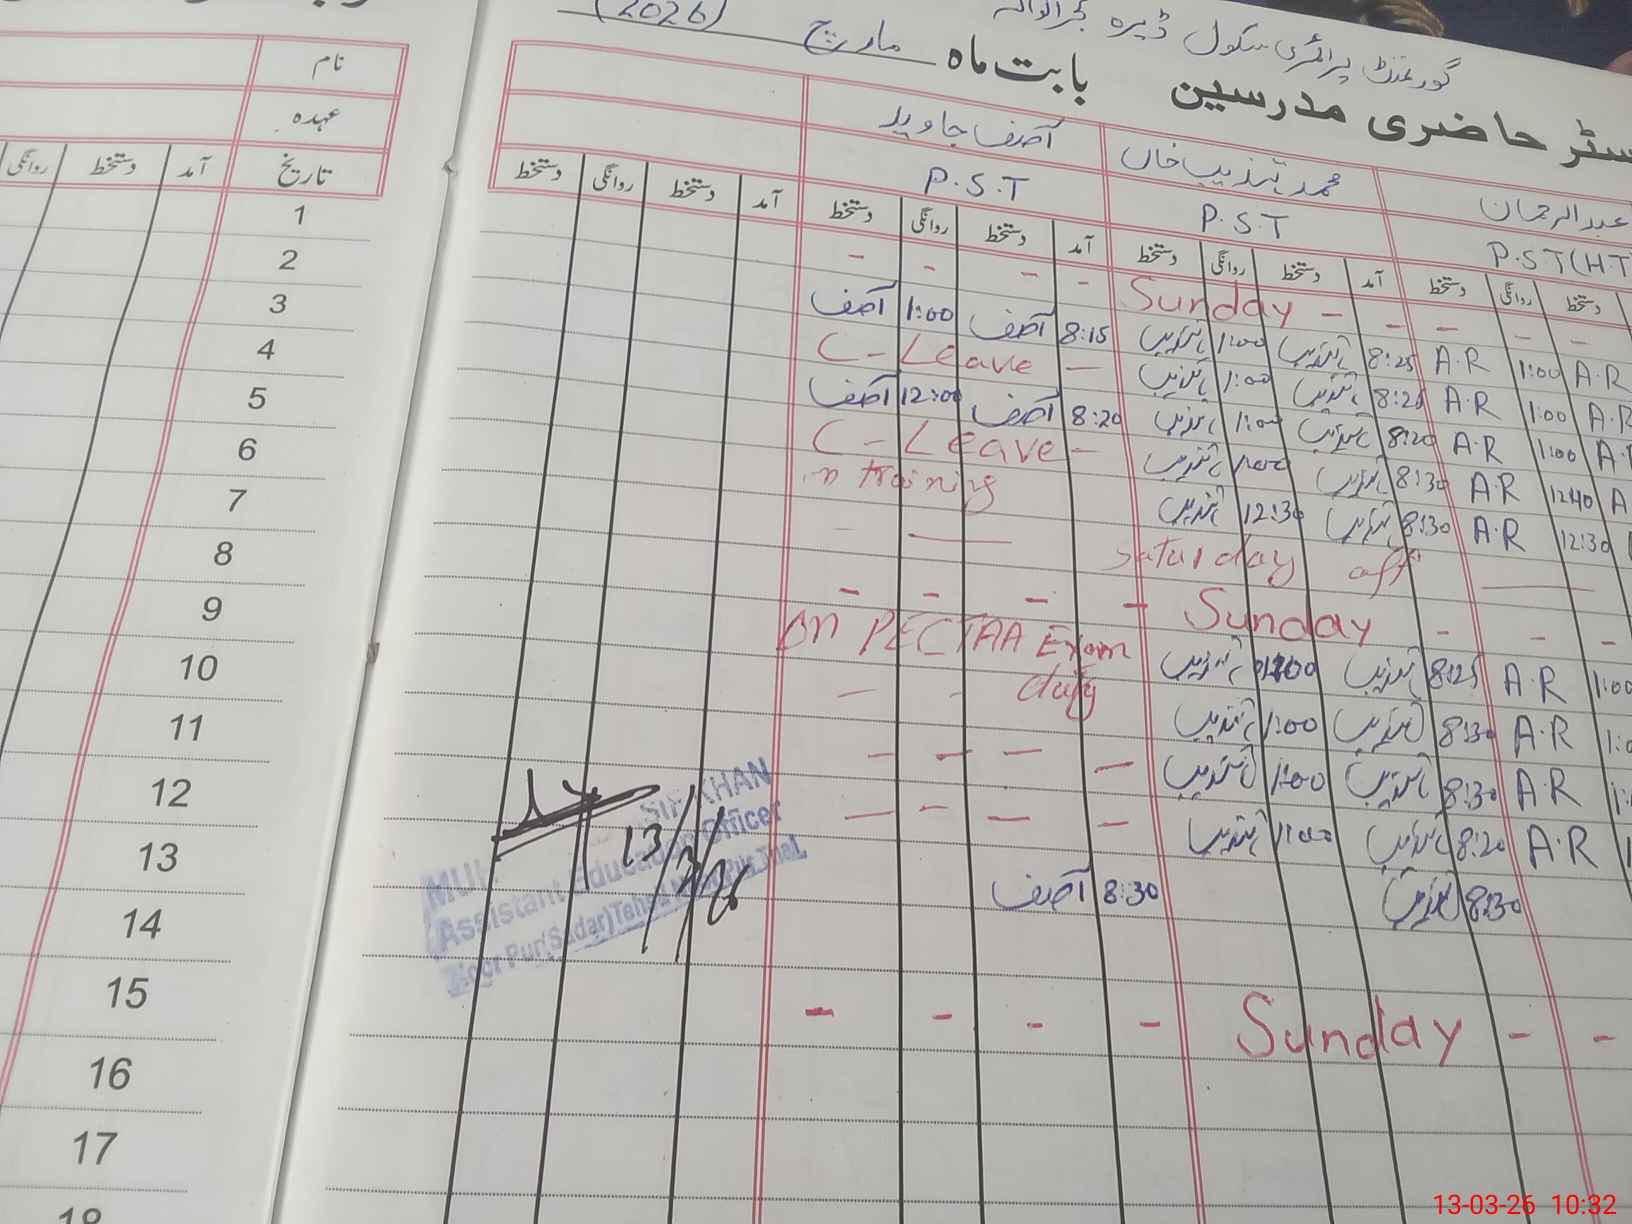 گورنمنٹ پرائمری سکول ڈیرہ
حاضری مدرسین بابت ماہ مارچ (2026)
نام
عہدہ
تاریخ آمد دستخط روانگی
عبدالرحمان محمد تہذیب خان آصف جاوید
P.S.T (H.T P.S.T P.S.T
دستخط روانگی دستخط آمد دستخط روانگی دستخط آمد دستخط روانگی دستخط آمد دستخط روانگی دستخط
1 - - - - Sunday - - - - -
2 آصف 1:00 آصف 8:15 تہذیب 1:00 تہذیب 8:25 A.R 1:00 A.R
3 C-Leave - تہذیب 1:00 تہذیب 8:25 A.R 1:00 A.R
4 آصف 12:00 آصف 8:20 تہذیب 1:00 تہذیب 8:20 A.R 1:00
5 C-Leave - تہذیب 1:00 تہذیب 8:30 A.R 12:40
6 training تہذیب 12:30 تہذیب 8:30 A.R 12:30
7 - Saturday off
8 - - - - Sunday - - -
9 On PECTAA Exam تہذیب تہذیب 8:25 A.R 1:00
10 - - duty تہذیب 1:00 تہذیب 8:30 A.R
11 - - - - تہذیب 1:00 تہذیب 8:30 A.R
12 - - - - تہذیب 1:00 تہذیب 8:20 A.R
13 آصف 8:30 تہذیب 8:30
14
15 - - - - Sunday - -
16
17
18
KHAN
Assistant Education Officer
(Sadar)
13/3/26
13-03-26 10:32